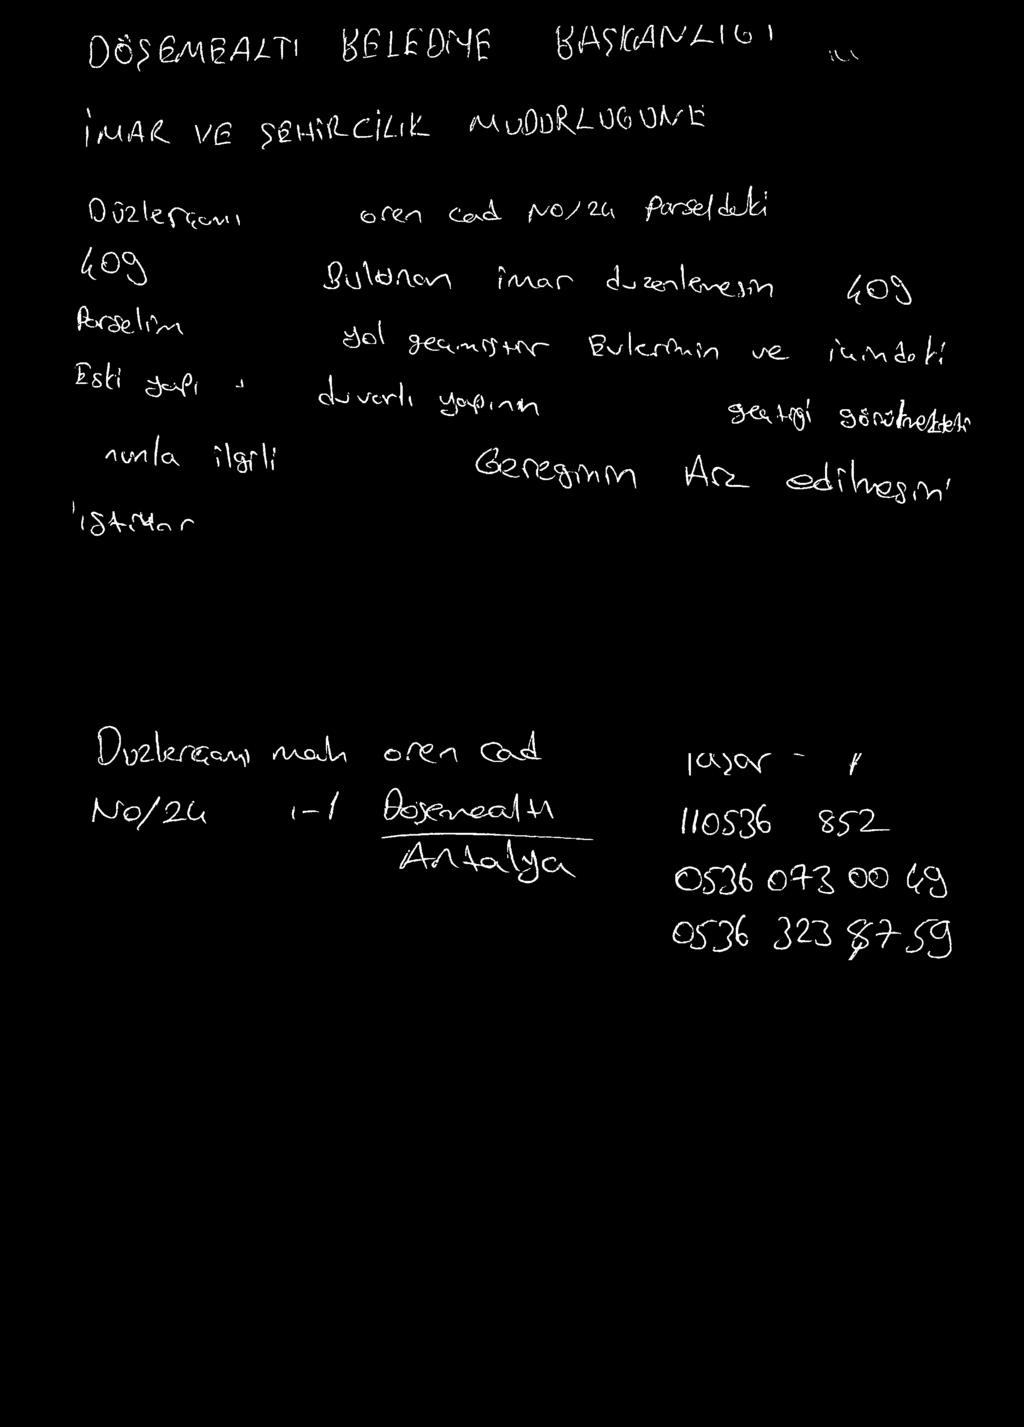 DÖŞEMEALTI BELEDİYE BAŞKANLIGI
İMAR VE ŞEHİRCİLİK MUDURLUGUNE
Düzlerçamı oren cad NO/24 Parseldeki
409 Bulunan imar duzenlemesin 409
Parselim yol geçmiştir Evlerimin ve içindeki
Eski yapı duvarlı yapının geçtigi görülmektedir
nunla ilgili Gereginin Arz edilmesini
istirhar
Duzlerçamı mah oren cad
No/24 1-1 Doşemealtı
Antalya
110536 852
0536 073 00 49
0536 323 87 59